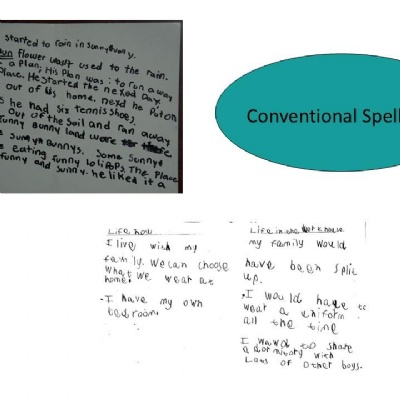 started to rain in sunnybunny.
sun flower wasn't used to the rain.
a plan, His Plan was: to run away
Place. He started the nexed Day.
out of his home, nexd he Puton
s he had six tennis shoes,
out of the Soil and ran away
funny Bunny land were there
e sunnyn Bunnys. Some sunnys
e eating funny lolipops. The Place
funny and sunny. he liked it a
Conventional Spell
Life now
I live with my
family. We can choose
What we wear at
home.
- I have my own
bedroom.
Life in the workhouse
my family would
have been split
up.
. I would have to
wear a uniform
all the time
I would to share
a dormitory with
Lots of other boys.